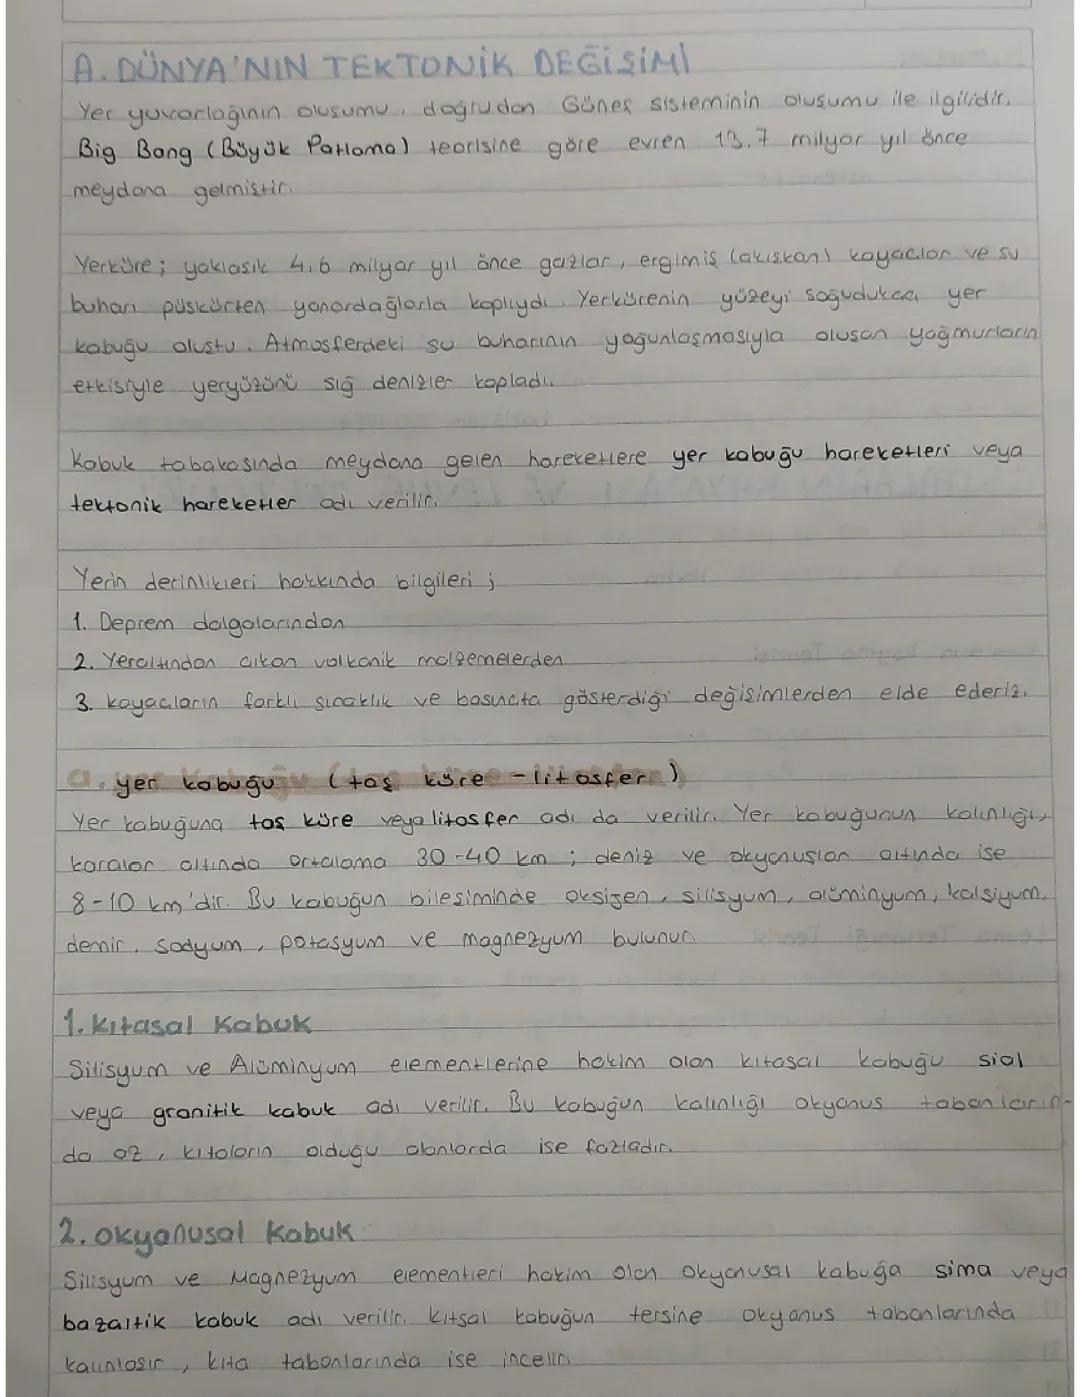 A. DÜNYA'NIN TEKTONİK DEĞİŞİMİ
Yer yuvarlağının oluşumu, doğrudan Güneş sisteminin oluşumu ile ilgilidir.
Big Bang (Büyük Patlama) teorisine göre evren 13.7 milyar yıl önce
meydana gelmiştir.
Yerküre; yaklaşık 4,6 milyar yıl önce gazlar, ergimiş (akışkan) kayaçlar ve su
buharı püskürten yanardağlarla kaplıydı. Yerkürenin yüzeyi soğudukça yer
kabuğu oluştu. Atmosferdeki su buharının yoğunlaşmasıyla oluşan yağmurların
etkisiyle yeryüzünü sığ denizler kapladı.
Kabuk tabakasında meydana gelen hareketlere yer kabuğu hareketleri veya
tektonik hareketler adı verilir.
Yerin derinlikleri hakkında bilgileri ;
1. Deprem dalgalarından
2. Yeraltından çıkan volkanik malzemelerden
3. kayaçların farklı sıcaklık ve basınçta gösterdiği değişimlerden elde ederiz.
a. yer kabuğu (taş küre - litosfer)
Yer kabuğuna taş küre veya litosfer adı da verilir. Yer kabuğunun kalınlığı,
karalar altında ortalama 30-40 km ; deniz ve okyanuslar altında ise
8-10 km'dir. Bu kabuğun bileşiminde oksijen, silisyum, alüminyum, kalsiyum,
demir, sodyum, potasyum ve magnezyum bulunur.
1. Kıtasal Kabuk
Silisyum ve Alüminyum elementlerine hakim olan kıtasal kabuğu sial
veya granitik kabuk adı verilir. Bu kabuğun kalınlığı okyanus tabanların-
da az, kıtaların olduğu alanlarda ise fazladır.
2. okyanusal Kabuk
Silisyum ve Magnezyum elementleri hakim olan okyanusal kabuğa sima veya
bazaltik kabuk adı verilir. kıtsal kabuğun tersine okyanus tabanlarında
kalınlaşır, kıta tabanlarında ise incelir.